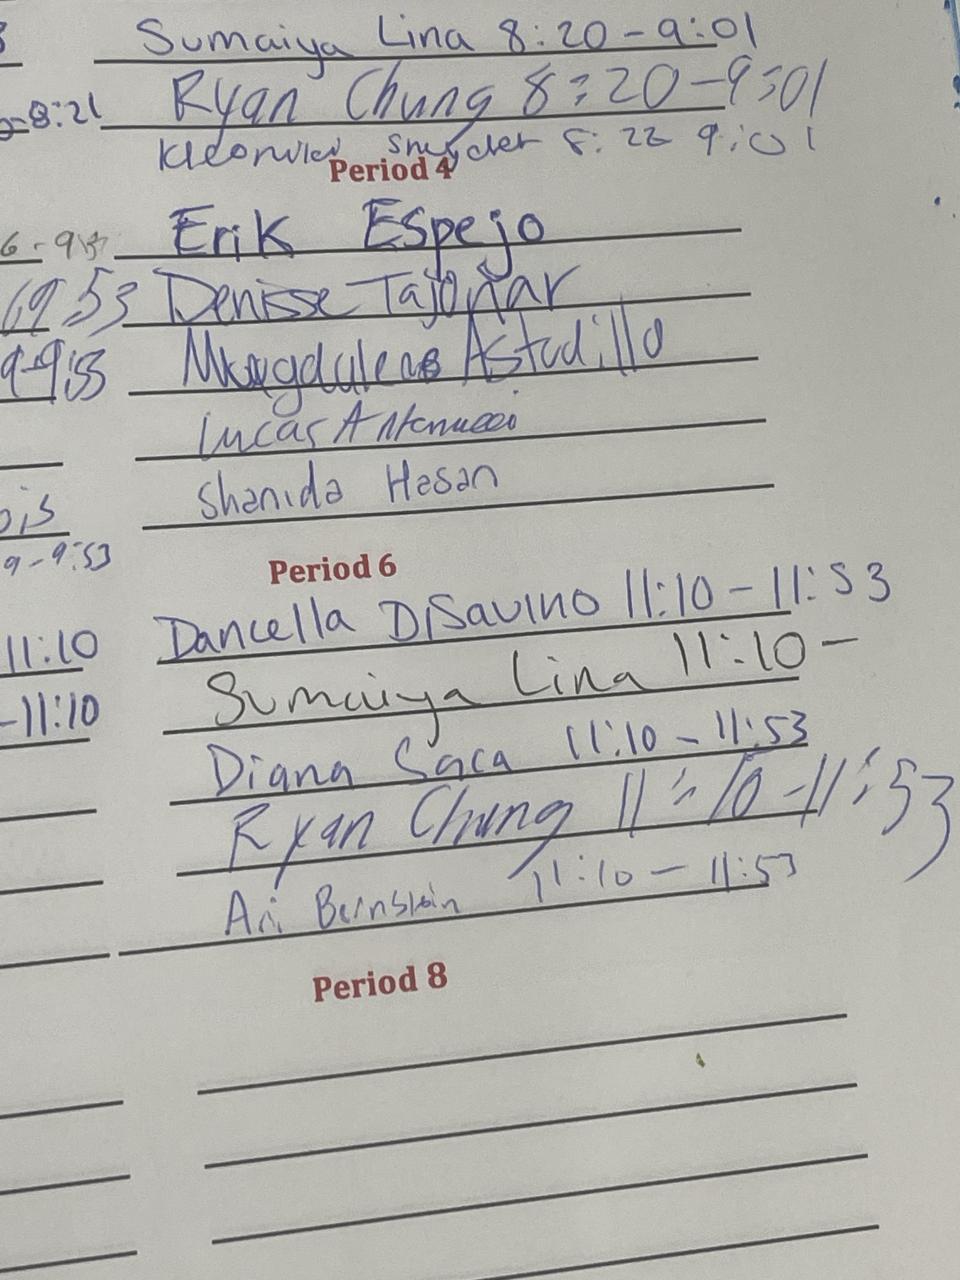 Sumaiya Lina 8:20-9:01
8:21 Ryan Chung 8:20-9:01
8:22 9:01
Period 4
Erik Espejo
9:53 Denisse Tajonar
9-9:53 Magdalena Astudillo
Lucas Antonucci
Shanida Hasan
9-9:53
Period 6
11:10 Dancella DiSavino 11:10-11:53
-11:10 Sumaiya Lina 11:10-
Diana Saca 11:10-11:53
Ryan Chung 11:10-11:53
Ari Bernstein 11:10-11:53
Period 8